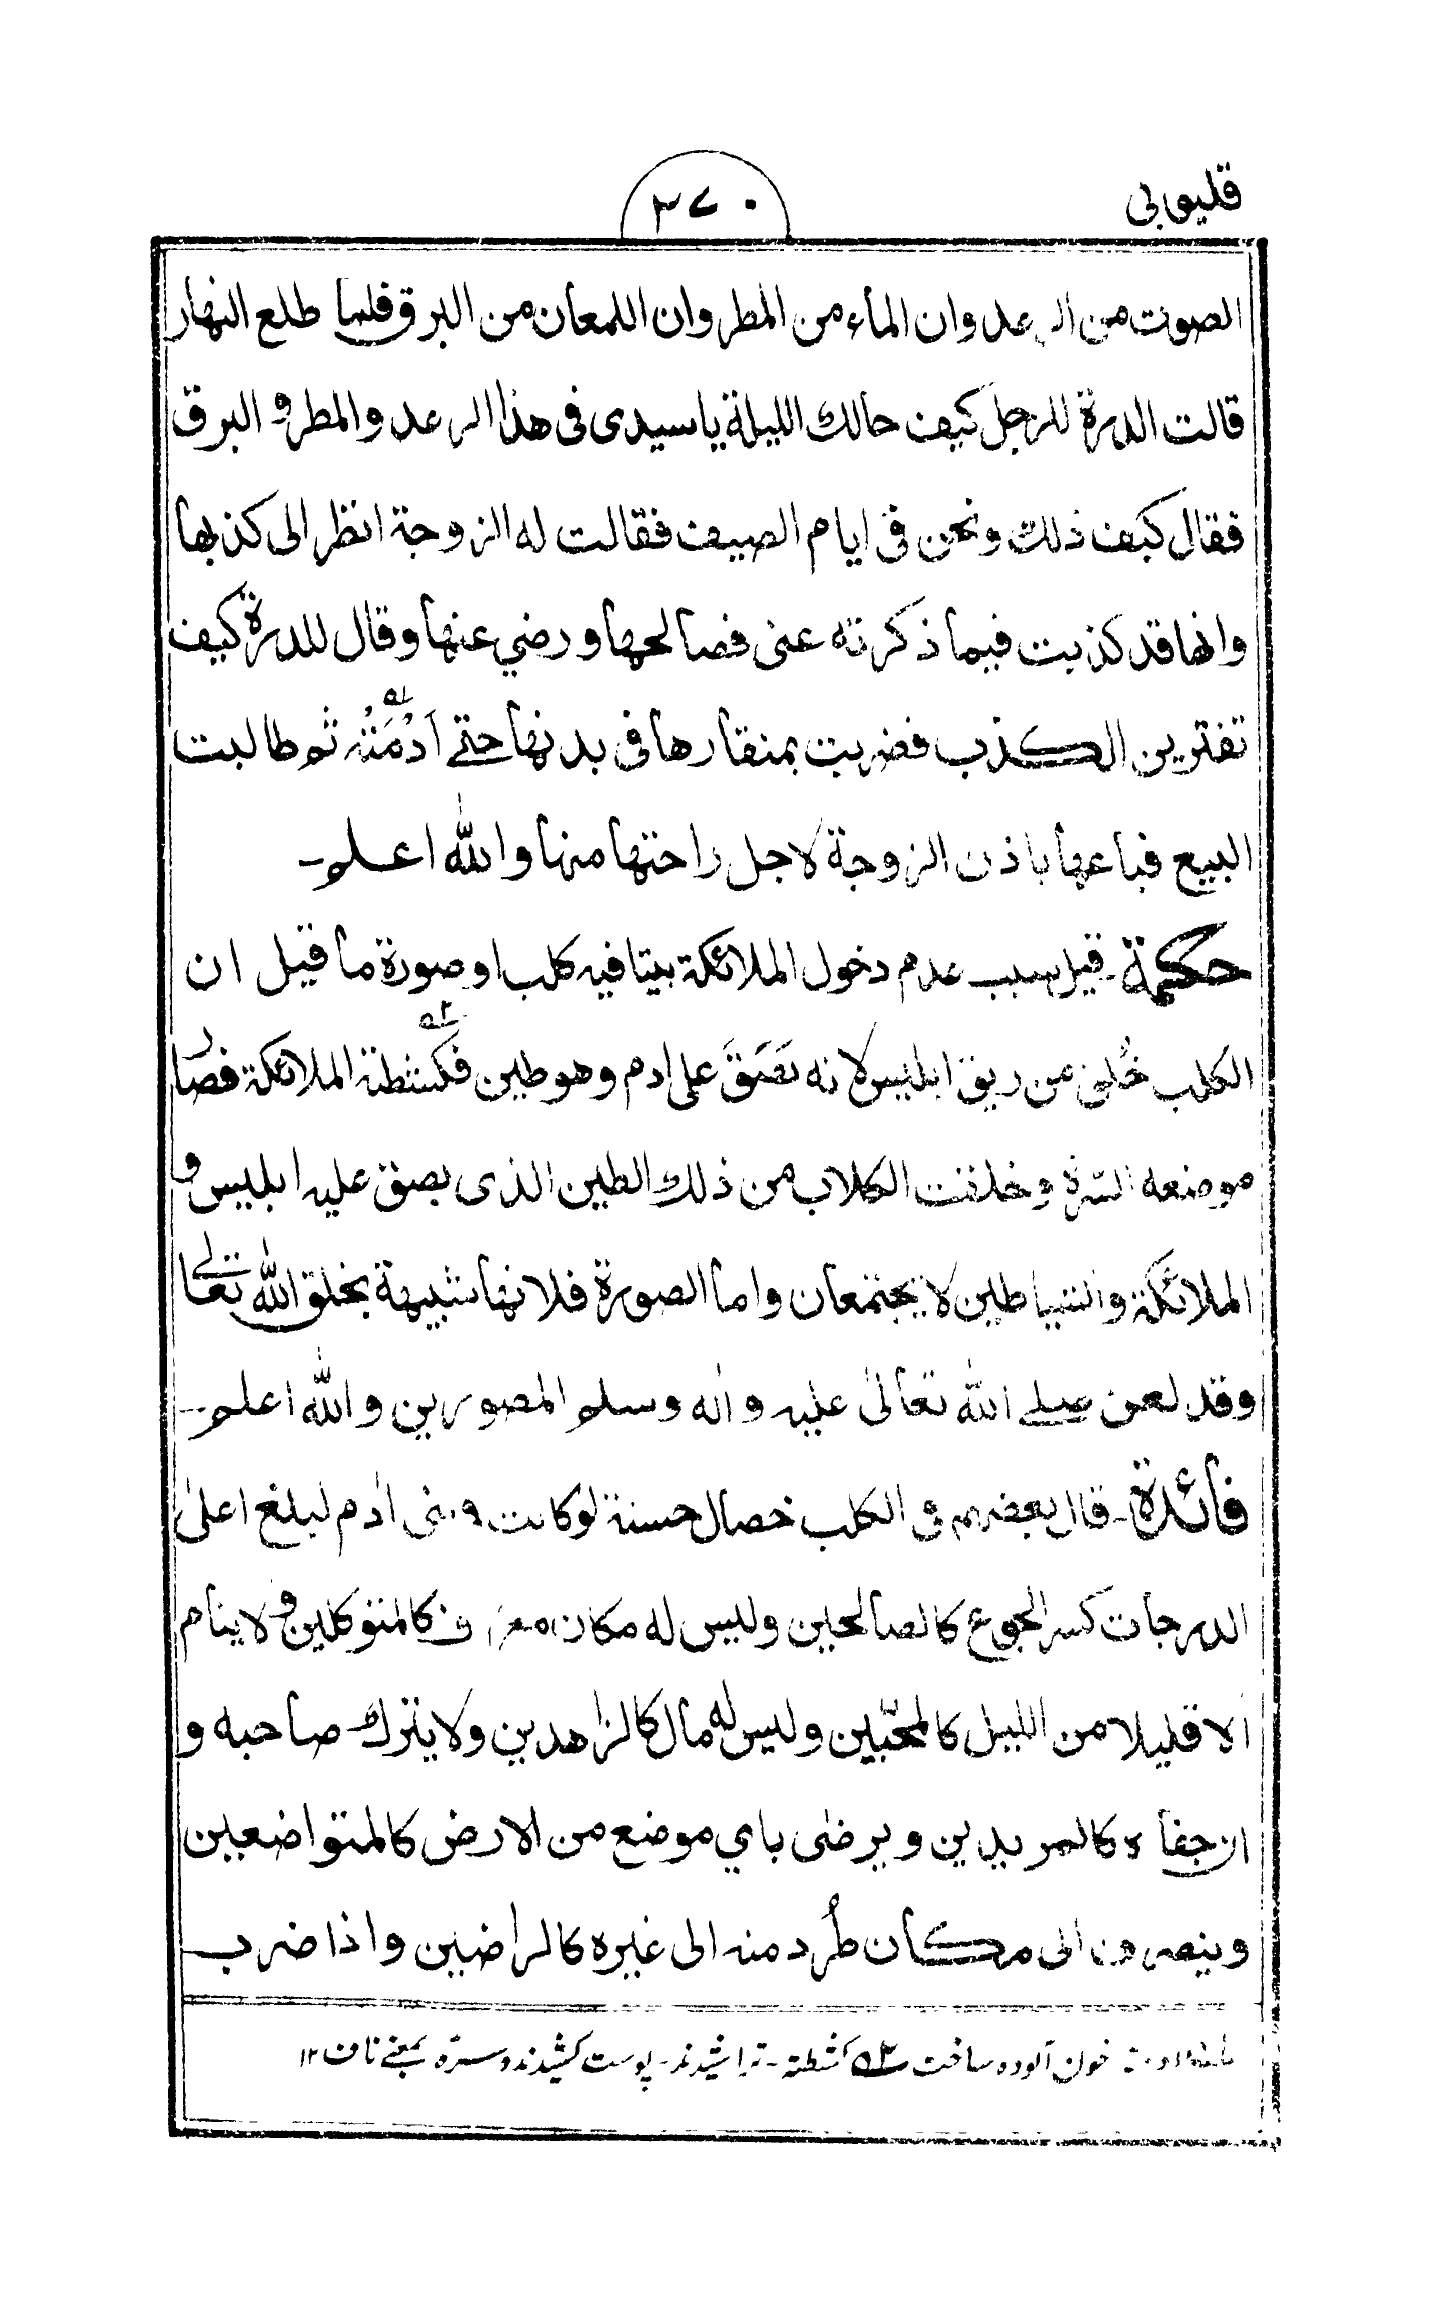 قليوبى
٣٧٠
الصوت من الرعد وان الماء من المطر وان اللمعان من البرق فلما طلع النهار
قالت الدرة للرجل كيف حالك الليلة يا سيدى فى هذا الرعد والمطر و البرق
فقال كيف ذلك ونحن فى ايام الصيف فقالت له الزوجة انظر الى كذبها
وانها قد كذبت فيما ذكرته عنى فصالحها ورضي عنها وقال للدرة كيف
تفترين الكذب فضربت بمنقارها فى بدنها حتى اَدْمَتْه ثم طالبت
البيع فباعها باذن الزوجة لاجل راحتها منها والله اعلم۔
حكمة۔ قيل سبب عدم دخول الملائكة بيتا فيه كلب او صورة ما قيل ان
الكلب خُلق من ريق ابليس لانه بَصَقَ على ادم وهو طين فكشطته الملائكة فصار
موضعه السرة و خلقت الكلاب من ذلك الطين الذى بصق عليه ابليس و
الملائكة والشياطين لا يجتمعان واما الصورة فلانها شبيهة بخلق الله تعالى
وقد لعن صلى الله تعالىٰ عليه واٰله وسلم المصورين والله اعلم۔
فائدة۔ قال بعضهم فى الكلب خصال حسنة لو كانت فى بنى اٰدم لبلغ اعلىٰ
الدرجات كسر الجوع كالصالحين وليس له مكان معرف كالمتوكلين و لا ينام
الا قليلا من الليل كالمحبّين وليس له مال كالزاهدين ولا يترك صاحبه و
ان جفاه كالمريدين ويرضى باي موضع من الارض كالمتواضعين
وينصرف الى مكان طُرد منه الى غيره كالراضين واذا ضرب
خون آلوده ساخت ٥٢ كشطته۔ تراشيدند۔ پوست كشيدند و سرّه بمعنے ناف ١٢